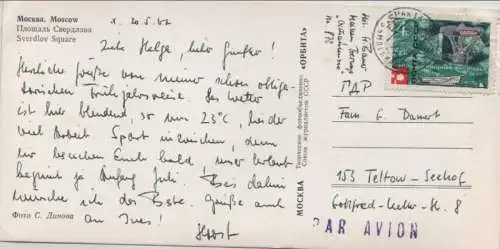 Москва. Moscow
Площадь Свердлова
Sverdlov Square
1. 20.5.67
Liebe Helge, lieber Gunter!
Herzliche Grüße von meiner schon obliga-
torischen Frühjahrsreise. Das Wetter
ist hier blendend, so um 23°C, leider
viel Arbeit. Sport inzwischen, denn
wir besuchen Euch bald, unser Urlaub
beginnt ja Anfang Juli. Bis dahin
wünsche ich das Beste. Grüße auch
an Ines!
Horst
Фото С. Динова
МОСКВА
Творческое фотообъединение «ОРБИТА»
Союза журналистов СССР
ГДР
Fam. G.
153 Teltow-Seehof
Gottfried-Keller-Str. 8
PAR AVION